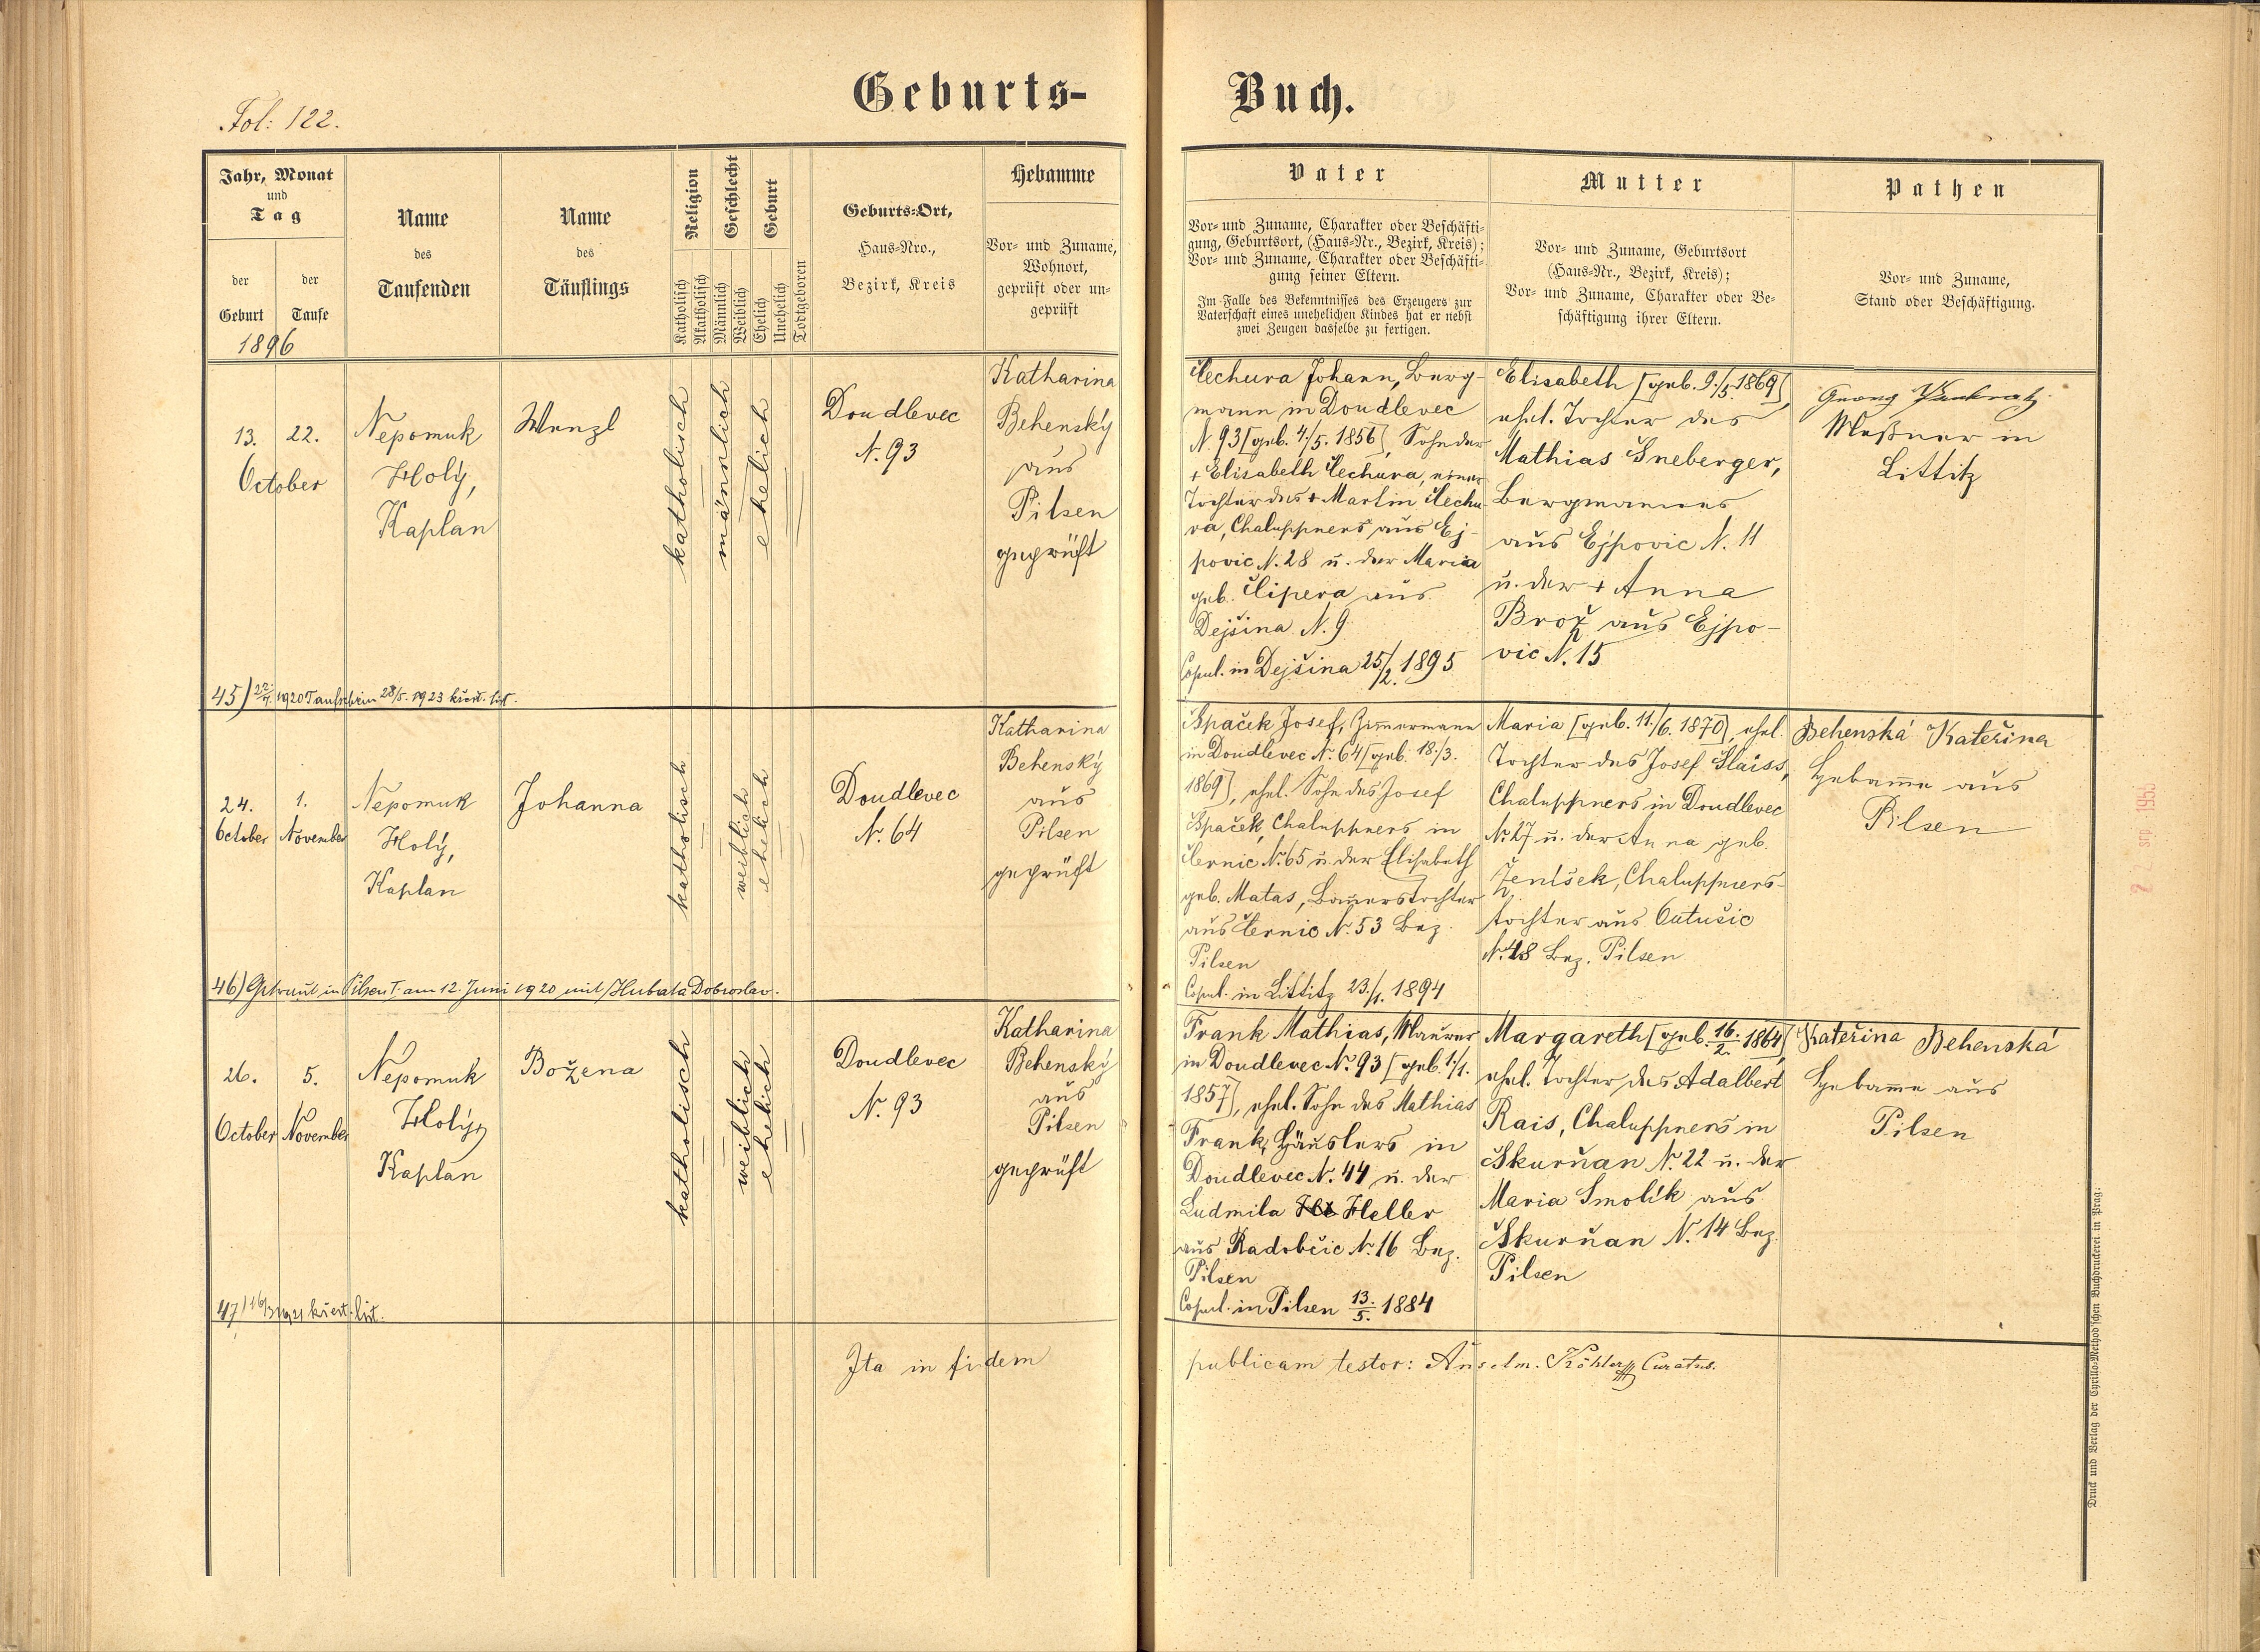 Geburts-Buch.
Fol: 122.
Jahr, Monat
und
Tag
der
Geburt
der
Taufe
1896
Name
des
Taufenden
Name
des
Täuflings
Religion
Katholisch
Akatholisch
Geschlecht
Männlich
Weiblich
Geburt
Ehelich
Unehelich
Todtgeboren
Geburts-Ort,
Haus-Nro.,
Bezirk, Kreis
Hebamme
Vor- und Zuname,
Wohnort,
geprüft oder un-
geprüft
Vater
Vor- und Zuname, Charakter oder Beschäfti-
gung, Geburtsort, (Haus-Nr., Bezirk, Kreis);
Vor- und Zuname, Charakter oder Beschäfti-
gung seiner Eltern.
Im Falle des Bekenntnisses des Erzeugers zur
Vaterschaft eines unehelichen Kindes hat er nebst
zwei Zeugen dasselbe zu fertigen.
Mutter
Vor- und Zuname, Geburtsort
(Haus-Nr., Bezirk, Kreis);
Vor- und Zuname, Charakter oder Be-
schäftigung ihrer Eltern.
Pathen
Vor- und Zuname,
Stand oder Beschäftigung.
13. 22.
October
Nepomuk
Holý,
Kaplan
Wenzl
katholisch
männlich
ehelich
Doudlevec
N. 93
Katharina
Behenský
aus
Pilsen
geprüft
Čechura Johann, Berg-
mann in Doudlevec
N 93 [geb. 4./5. 1856], Sohn der
+ Elisabeth Čechura, einer
Tochter des + Martin Čechu-
ra, Chaluppners aus Ej-
povic N. 28 u. der Maria
geb. Čipera aus
Dejšina N. 9
Copul. in Dejšina 25/2. 1895
Elisabeth [geb. 9./5. 1869],
ehel. Tochter des
Mathias Šneberger,
Bergmannes
aus Ejpovic N. 11
u. der + Anna
Brož aus Ejpo-
vic N. 15
Georg Pankratz
Meßner in
Littitz
45) 22./7. 1920 Taufschein 28/5. 1923 křest. list.
24. 1.
October November
Nepomuk
Holý,
Kaplan
Johanna
katholisch
weiblich
ehelich
Doudlevec
N. 64
Katharina
Behenský
aus
Pilsen
geprüft
Špaček Josef, Zimmermann
in Doudlevec N. 64 [geb. 18./3.
1869], ehel. Sohn des Josef
Špaček, Chaluppners in
Černic N. 65 u. der Elisabeth
geb. Matas, Bauerstochter
aus Černic N. 53 Bez.
Pilsen
Copul. in Littitz 23./1. 1894
Maria [geb. 11./6. 1870], ehel.
Tochter des Josef Slaiss,
Chaluppners in Doudlevec
N. 27 u. der Anna geb.
Ženíšek, Chaluppners-
tochter aus Outušic
N. 48 Bez. Pilsen
Behenská Kateřina
Hebamme aus
Pilsen
46) Getraut in Pilsen I. am 12. Juni 1920 mit Hubata Dobroslav.
26. 5.
October November
Nepomuk
Holý,
Kaplan
Božena
katholisch
weiblich
ehelich
Doudlevec
N. 93
Katharina
Behenský
aus
Pilsen
geprüft
Frank Mathias, Maurer
in Doudlevec N. 93 [geb. 1./1.
1857], ehel. Sohn des Mathias
Frank, Häuslers in
Doudlevec N. 44 u. der
Ludmila Heller
aus Radobčic N. 16 Bez.
Pilsen
Copul. in Pilsen 13./5. 1884
Margareth [geb. 16./2. 1864],
ehel. Tochter des Adalbert
Rais, Chaluppners in
Skurňan N. 22 u. der
Maria Smolík aus
Skurňan N. 14 Bez.
Pilsen
Kateřina Behenská
Hebamme aus
Pilsen
47) 16/3 1921 křest. list.
Ita in fidem publicam testor: Anselm. Köhler Curatus.
Druck und Verlag der Cyrillo-Method'schen Buchdruckerei in Prag.